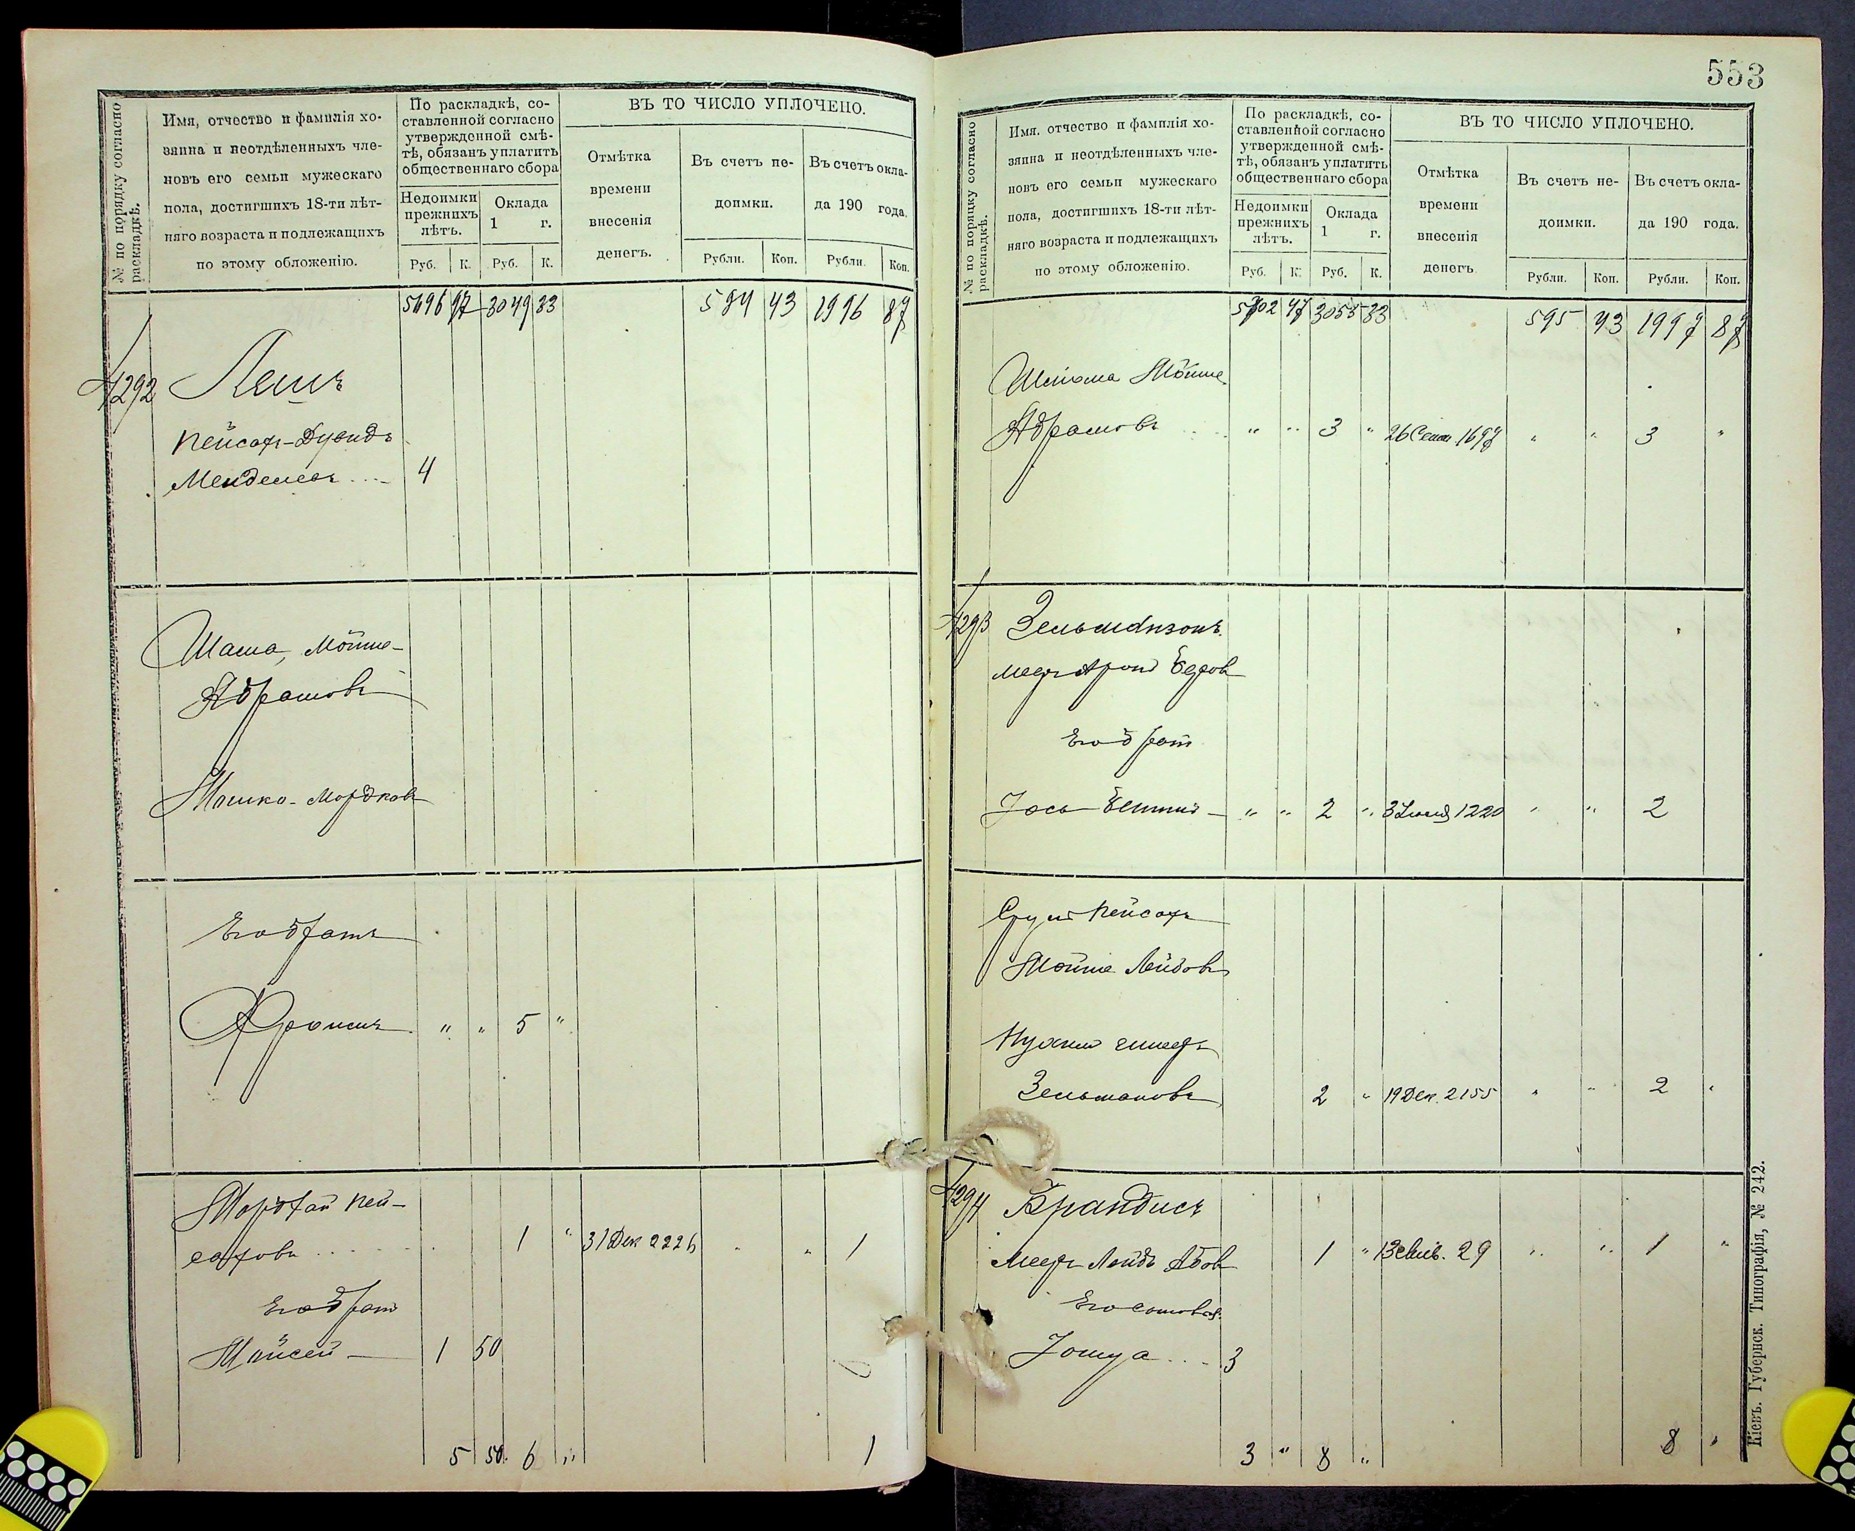 № по порядку согласно раскладкѣ.
Имя, отчество и фамилія хо-
зяина и неотдѣленныхъ чле-
новъ его семьи мужескаго
пола, достигшихъ 18-ти лѣт-
няго возраста и подлежащихъ
по этому обложенію.
По раскладкѣ, со-
ставленной согласно
утвержденной смѣ-
тѣ, обязанъ уплатить
общественнаго сбора
Недоимки
прежнихъ
лѣтъ.
Оклада
1 г.
Руб. К. Руб. К.
ВЪ ТО ЧИСЛО УПЛОЧЕНО.
Отмѣтка
времени
внесенія
денегъ.
Въ счетъ не-
доимки.
Въ счетъ окла-
да 190 года.
Рубли. Коп. Рубли. Коп.
97 3049 83 594 43 1996 87
4292
Пейсах-Дувидъ
4
Мошко-Мордков
Его братъ
5
Мордхай Пей-
сахов 1 31 Дек 2226 1
Его брат
Мойсей 1 50
5 50 6 1
553
№ по порядку согласно раскладкѣ.
Имя, отчество и фамилія хо-
зяина и неотдѣленныхъ чле-
новъ его семьи мужескаго
пола, достигшихъ 18-ти лѣт-
няго возраста и подлежащихъ
по этому обложенію.
По раскладкѣ, со-
ставленной согласно
утвержденной смѣ-
тѣ, обязанъ уплатить
общественнаго сбора
Недоимки
прежнихъ
лѣтъ.
Оклада
1 г.
Руб. К. Руб. К.
ВЪ ТО ЧИСЛО УПЛОЧЕНО.
Отмѣтка
времени
внесенія
денегъ
Въ счетъ не-
доимки.
Въ счетъ окла-
да 190 года.
Рубли. Коп. Рубли. Коп.
47 3055 83 595 43 1997 87
Шлиома Мойше
Абрамовъ 3 26 Сент 1697 3
4293 Зельманзонъ
Его брат
Іось 2 1220 2
Сруль Пейсахъ
Мойше Лейбов
Зельмановъ 2 19 Дек. 2155 2
4294 Брандисъ
Меер Лейбъ Абов 1 29 1
Его сыновья
Іошуа 3
3 8 8
Кіевъ. Губернск. Типографія, № 242.